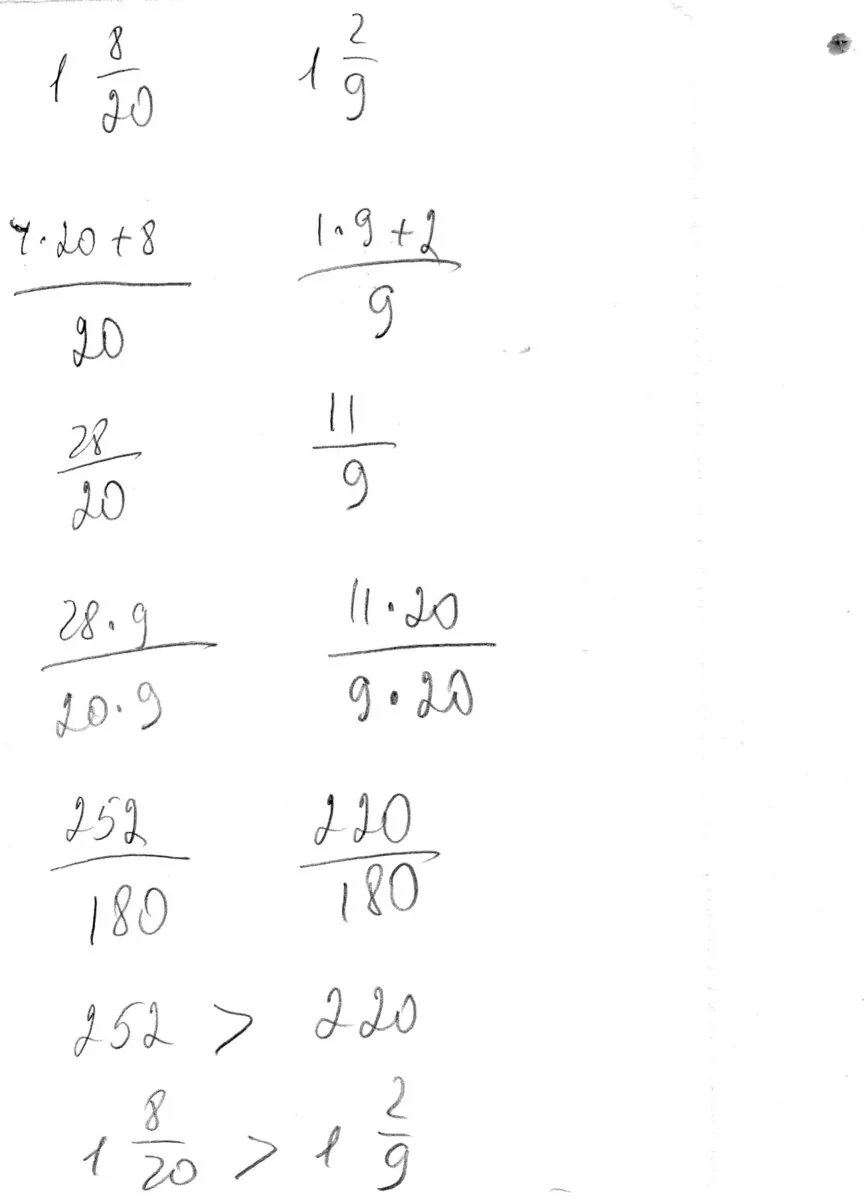 1 8/20 1 2/9
1·20+8/20 1·9+2/9
28/20 11/9
28·9/20·9 11·20/9·20
252/180 220/180
252 > 220
1 8/20 > 1 2/9